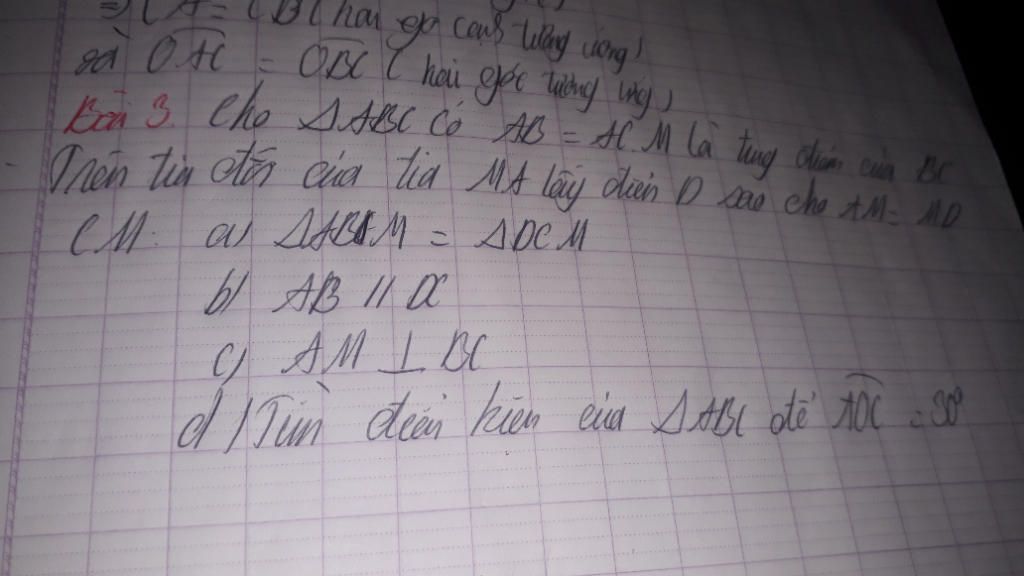 => CA = CB ( hai cạnh tương ứng)
và OAC = OBC ( hai góc tương ứng)
Bài 3 Cho ΔABC có AB = AC M là trung điểm của BC
Trên tia đối của tia MA lấy điểm D sao cho AM = MD
CM: a) ΔABM = ΔDCM
b) AB // DC
c) AM ⊥ BC
d) Tìm điều kiện của ΔABC để ADC = 30°